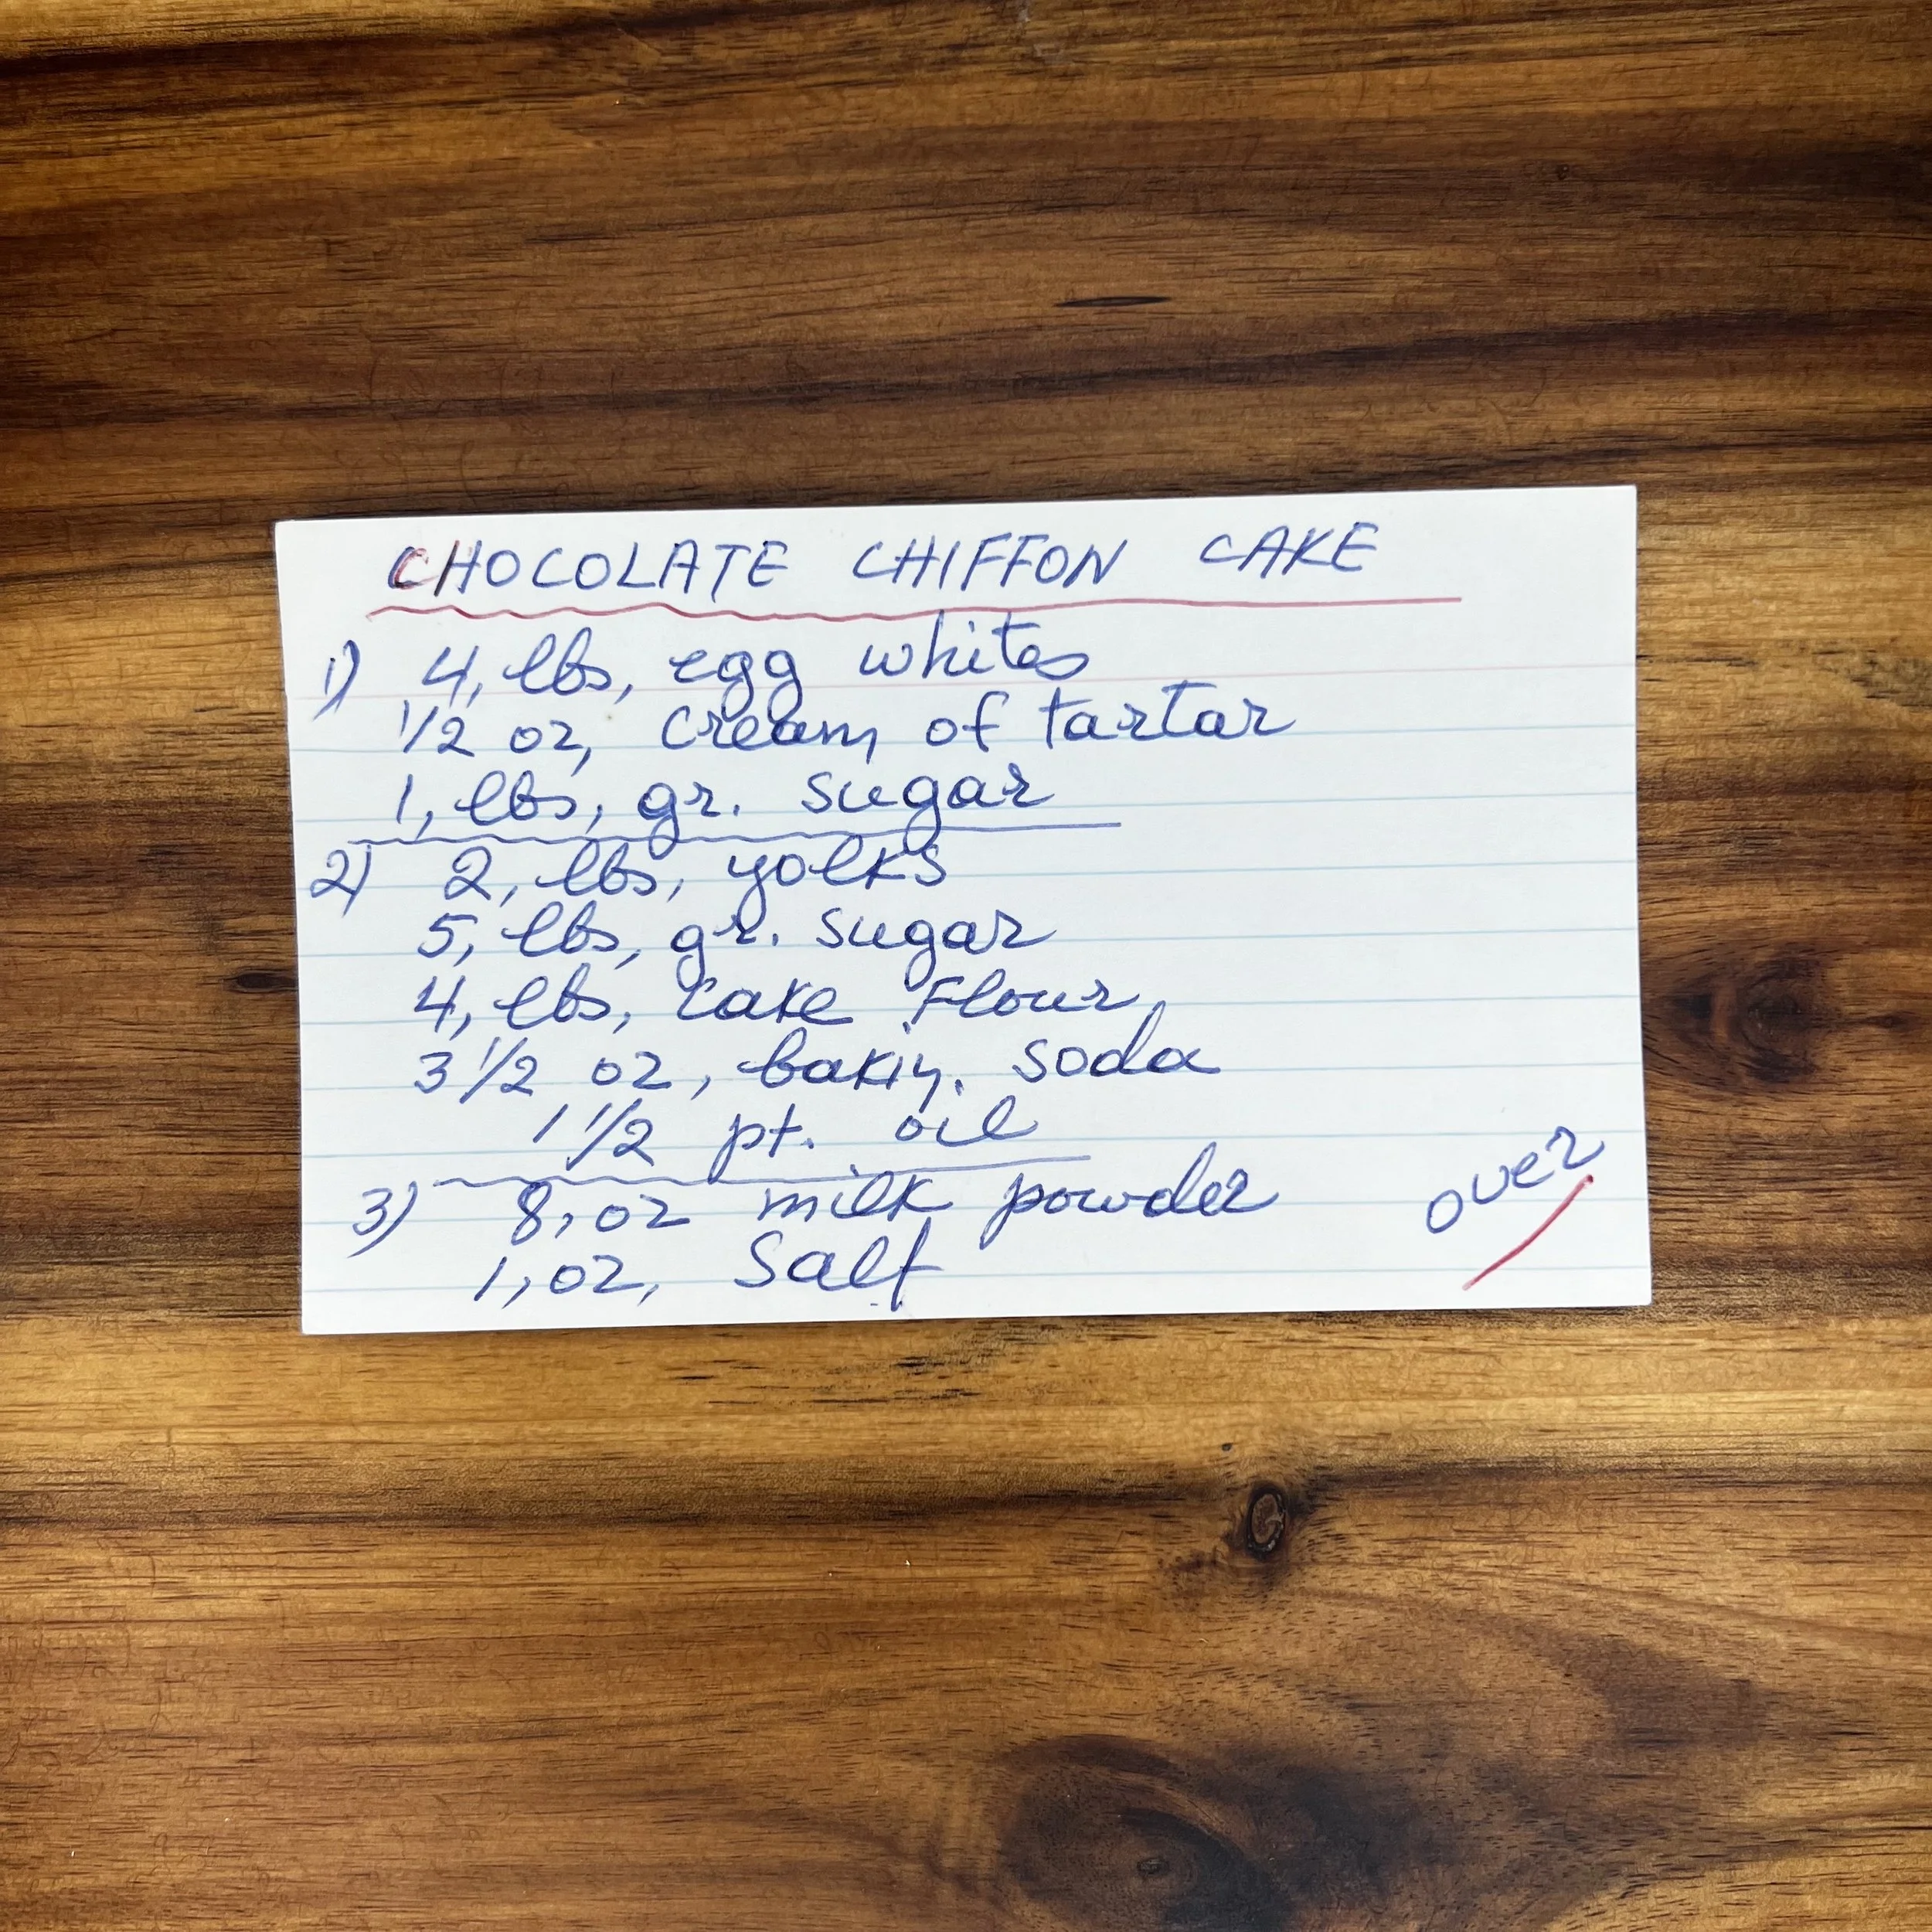 CHOCOLATE CHIFFON CAKE
1) 4, lbs, egg whites
1/2 oz, cream of tartar
1, lbs, gr. sugar
2) 2, lbs, yolks
5, lbs, gr. sugar
4, lbs, cake Flour,
3 1/2 oz, bakin. soda
1 1/2 pt. oil
3) 8, oz milk powder
1, oz, Salt
over